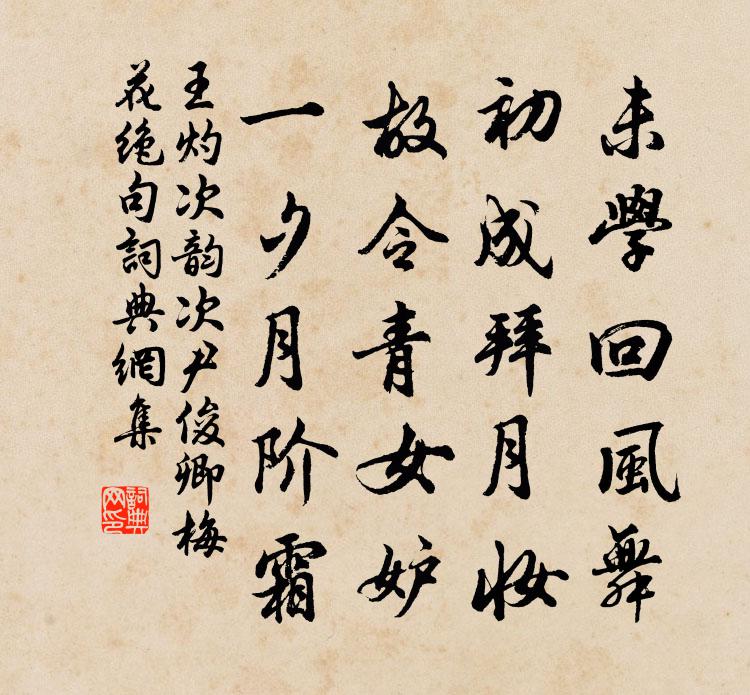 未學回風舞
初成拜月妆
故令青女妒
一夕月阶霜
王灼次韵次尹俊卿梅
花绝句詞典網集
詞典
网印